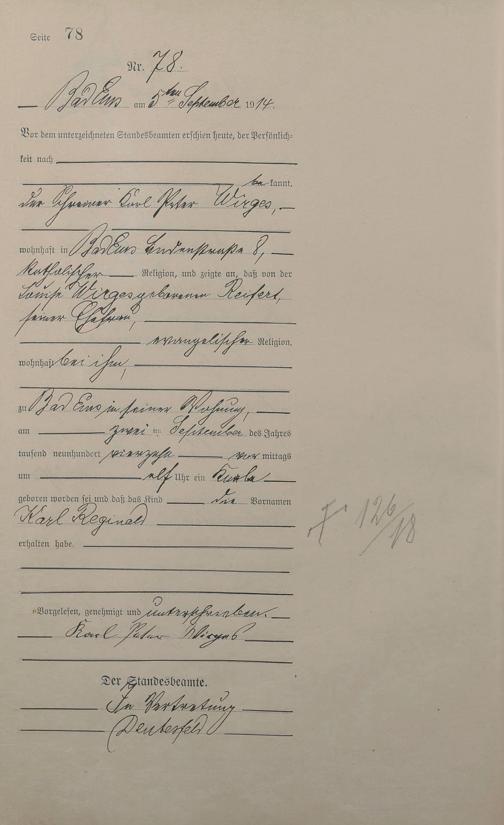 Seite 78
Nr. 78.
Bad Ems am 5ten September 1914.
Vor dem unterzeichneten Standesbeamten erschien heute, der Persönlich-
keit nach
be kannt,
der Schreiner Karl Peter Wirges,
wohnhaft in Bad Ems Lindenstraße 8,
katholischer Religion, und zeigte an, daß von der
Louise Wirges geborenen Reifert,
seiner Ehefrau,
evangelischer Religion,
wohnhaft bei ihm,
zu Bad Ems in seiner Wohnung,
am zwei ten September des Jahres
tausend neunhundert vierzehn vor mittags
um elf Uhr ein Knabe
geboren worden sei und daß das Kind die Vornamen
Karl Reginald
erhalten habe.
126/18
Vorgelesen, genehmigt und unterschrieben.
Karl Peter Wirges
Der Standesbeamte.
In Vertretung